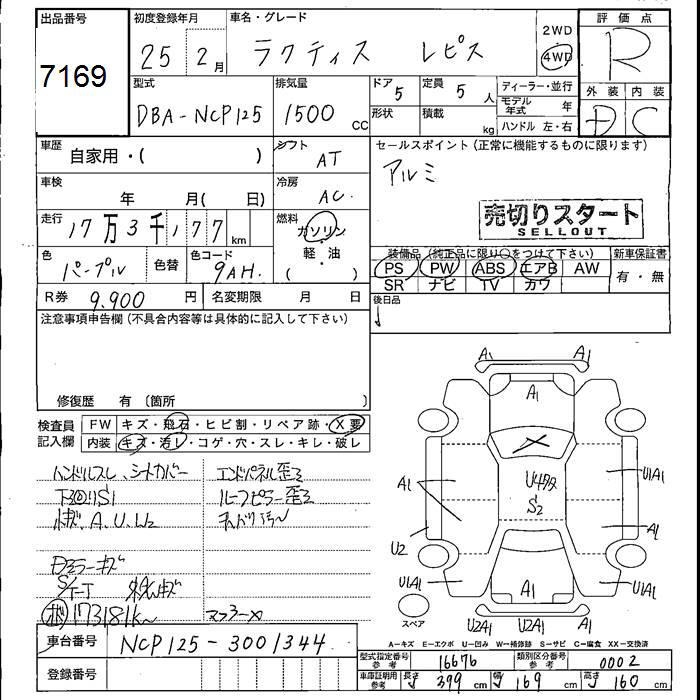 出品番号 初度登録年月 車名・グレード 評価点
7169 25年 2月 ラクティス レピス 2WD 4WD R
型式 排気量 ドア 5 定員 5人 ディーラー・並行 外装 内装
DBA-NCP125 1500 CC 形状 積載 kg モデル年式 年 D C
ハンドル 左・右
車歴 自家用・( ) シフト AT セールスポイント(正常に機能するものに限ります)
アルミ
車検 年 月( 日) 冷房 AC
売切りスタート
SELLOUT
走行 17万3千177km 燃料 ガソリン・軽・油 ( )
色 パープル 色替 色コード 9AH
装備品(純正品に限り○をつけて下さい) 新車保証書
PS PW ABS エアB AW 有・無
SR ナビ TV カワ
R券 9,900円 名変期限 月 日 後日品
注意事項申告欄(不具合内容等は具体的に記入して下さい)
修復歴 有〔箇所 〕
検査員記入欄 FW キズ・飛石・ヒビ割・リペア跡・X要
内装 キズ・汚レ・コゲ・穴・スレ・キレ・破レ
ハンドルスレ、シートカバー エンドパネル歪
ルーフピラー歪
A、U、W2
ミラーキズ
S/T-T
173181k~
A1 A1
A1
U4
S2
A1
U1A1
A1
U2
U1A1
U1A1
A1
スペア
U2A1 U2A1 A1
車台番号 NCP125-3001344
A-キズ E-エクボ U-凹み W-補修跡 S-サビ C-腐食 XX-交換済
登録番号
型式指定番号参考 16676 類別区分番号参考 0002
車庫証明用参考 長さ 399cm 幅 169cm 高さ 160cm